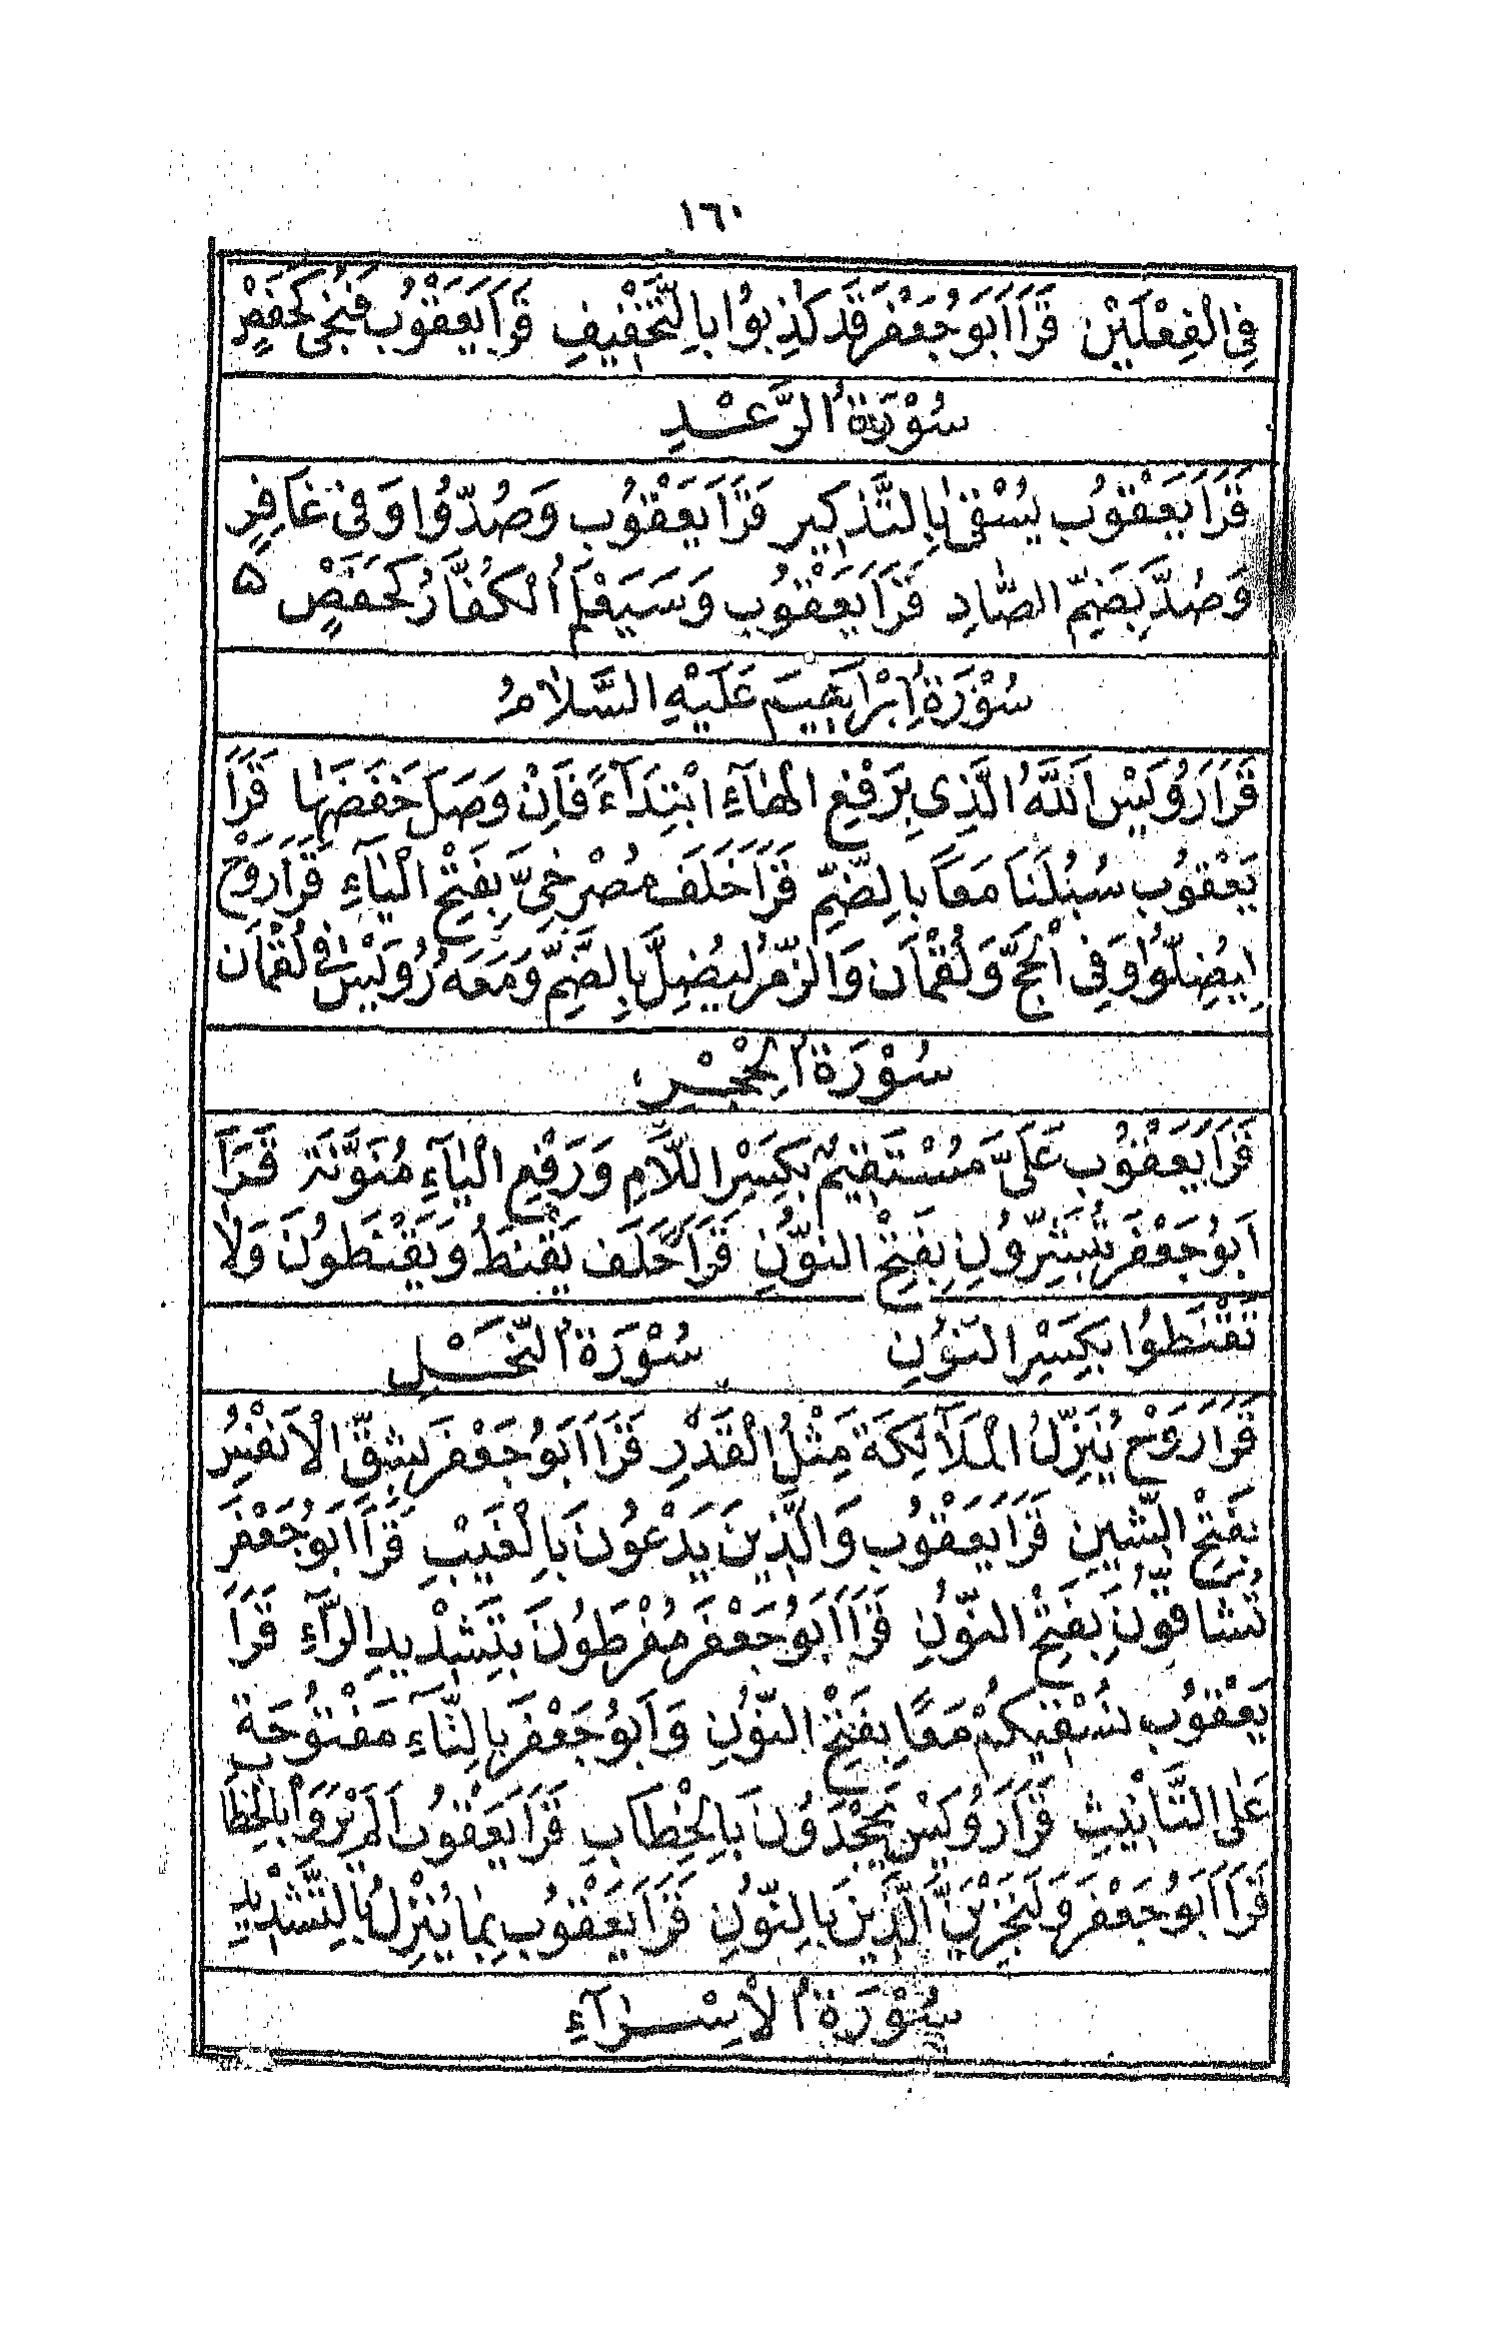 ١٦٠
فِى الْفِعْلَيْنِ قَرَاَ اَبُو جَعْفَرَ قَدْ كُذِبُوا بِالتَّخْفِيفِ قَرَاَ يَعْقُوبُ فَنُجِّىَ كَحَفْصٍ
سُوْرَةُ الرَّعْدِ
قَرَاَ يَعْقُوبُ يُسْقٰى بِالتَّذْكِيرِ قَرَاَ يَعْقُوبُ وَصُدُّوا وَفِى غَافِرٍ
وَصُدَّ بِضَمِّ الصَّادِ قَرَاَ يَعْقُوبُ وَسَيَعْلَمُ الْكُفَّارُ كَحَفْصٍ ۵
سُوْرَةُ اِبْرَاهِيمَ عَلَيْهِ السَّلَامُ
قَرَاَ رُوَيْسٌ اَللّٰهُ الَّذِى بِرَفْعِ الْهَاءِ ابْتِدَآءً فَاِنْ وَصَلَ خَفَضَهَا قَرَاَ
يَعْقُوبُ سُبُلَنَا مَعًا بِالضَّمِّ قَرَاَ خَلَفٌ مُصْرِخِىَّ بِفَتْحِ الْيَآءِ قَرَاَ رَوْحٌ
لِيُضِلُّوا وَفِى الْحَجِّ وَلُقْمَانَ وَالزُّمَرِ لِيُضِلَّ بِالضَّمِّ وَمَعَهُ رُوَيْسٌ فِى لُقْمَانَ
سُوْرَةُ الْحِجْرِ
قَرَاَ يَعْقُوبُ عَلَىَّ مُسْتَقِيمٌ بِكَسْرِ اللَّامِ وَرَفْعِ الْيَآءِ مُنَوَّنَةً قَرَاَ
اَبُو جَعْفَرَ تُبَشِّرُونِ بِفَتْحِ النُّونِ قَرَاَ خَلَفٌ يَقْنِطُ وَيَقْنِطُونَ وَلَا
تَقْنِطُوا بِكَسْرِ النُّونِ سُوْرَةُ النَّحْلِ
قَرَاَ رَوْحٌ يُنَزِّلُ الْمَلَآئِكَةَ مِثْلُ الْقَدْرِ قَرَاَ اَبُو جَعْفَرَ بِشِقِّ الْاَنْفُسِ
بِفَتْحِ الشِّينِ قَرَاَ يَعْقُوبُ وَالَّذِينَ يَدْعُونَ بِالْغَيْبِ قَرَاَ اَبُو جَعْفَرَ
تُشَاقُّونَ بِفَتْحِ النُّونِ قَرَاَ اَبُو جَعْفَرَ مُفْرَطُونَ بِتَشْدِيدِ الرَّآءِ قَرَاَ
يَعْقُوبُ نُسْقِيكُمْ مَعًا بِفَتْحِ النُّونِ وَاَبُو جَعْفَرَ بِالتَّآءِ مَفْتُوحَةٍ
عَلَى التَّانِيثِ قَرَاَ رُوَيْسٌ يَجْحَدُونَ بِالْخِطَابِ قَرَاَ يَعْقُوبُ اَلَمْ يَرَوْا بِالْخِطَا
قَرَاَ اَبُو جَعْفَرَ وَلَنَجْزِيَنَّ الَّذِينَ بِالنُّونِ قَرَاَ يَعْقُوبُ بِمَا يُنَزِّلُ بِالتَّشْدِيدِ
سُوْرَةُ الْاِسْرَآءِ